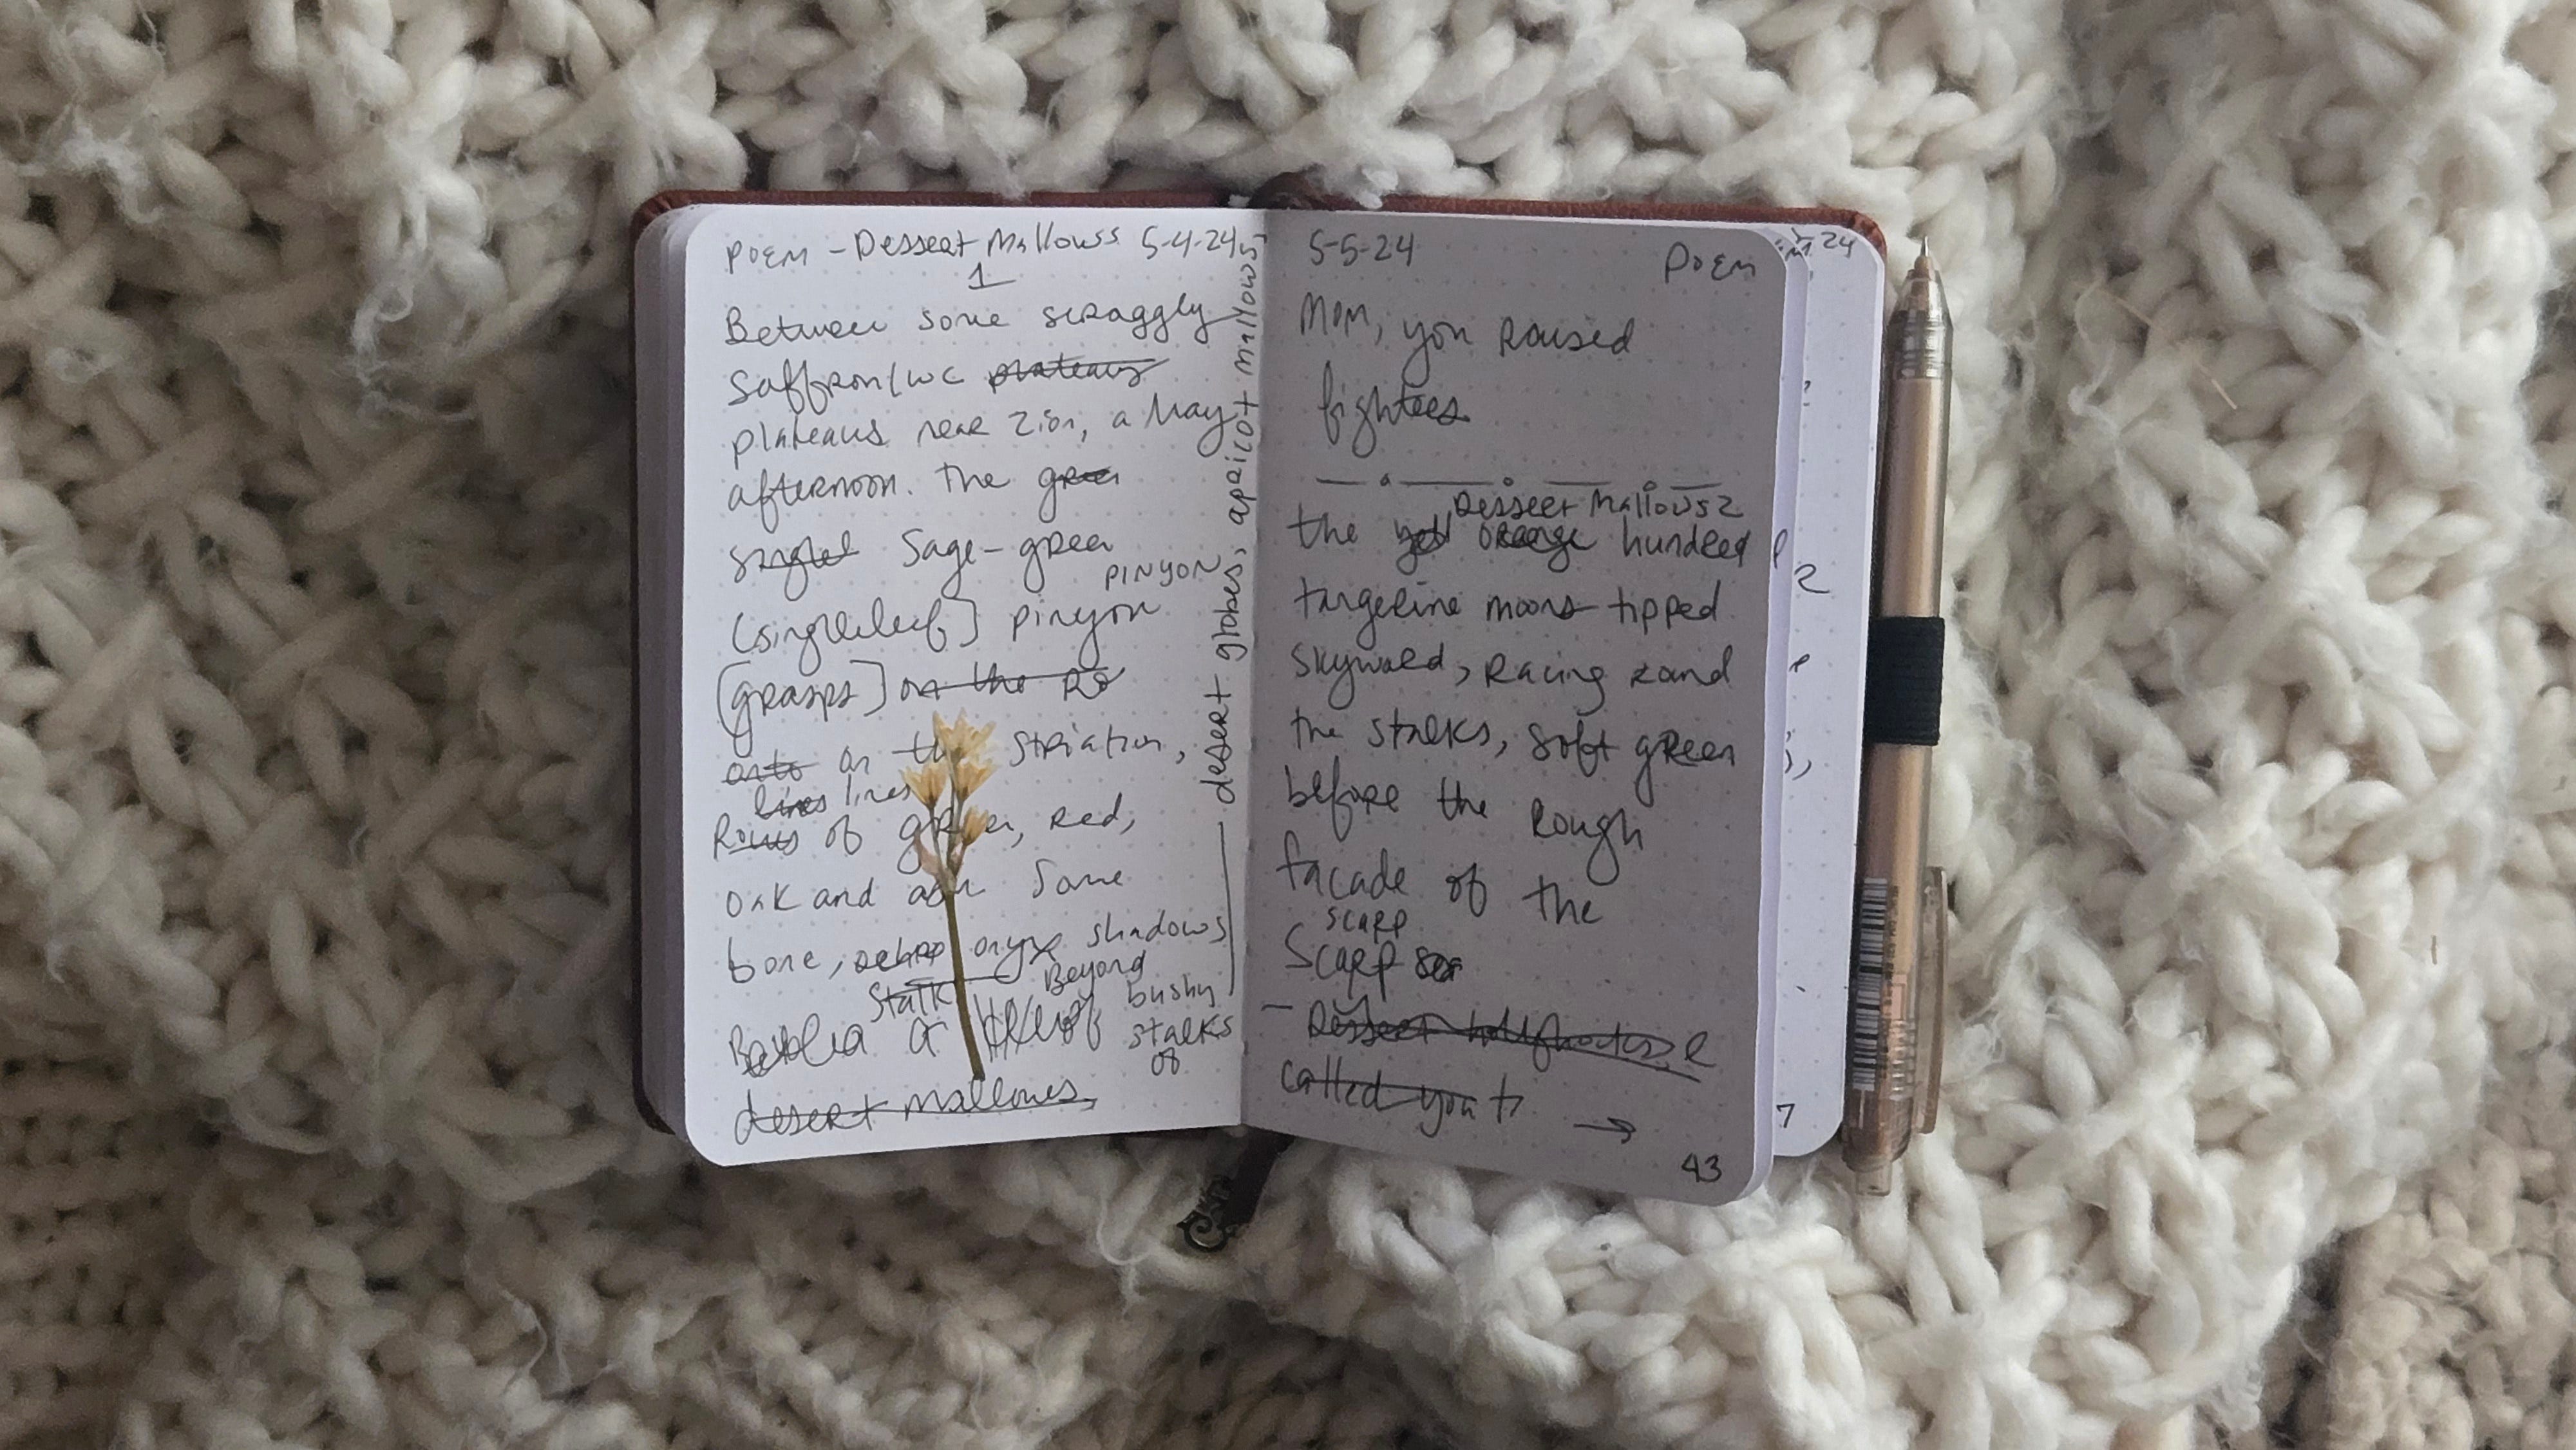 POEM - Dessert Mallows 5-4-24
1
Between some scraggly
saffron/wc plateaus
plateaus near Zion, a May
afternoon. The gree
singlel Sage-green
PINYON
(singleleaf) pinyon
[grasps] on the Ro
onto on the striation,
lines lines
Rows of green, red,
oak and ash some
bone, onyx shadows
Stalk Beyond bushy
a stalks
of
desert mallows,
desert globes, apricot mallows
5-5-24 POEM
Mom, you roused
fighters
Dessert Mallows 2
the yell orange hundred
tangerine moons tipped
skyward, racing round
the stalks, soft green
before the rough
facade of the
scarp
Scarp
called you
43
24
2
7